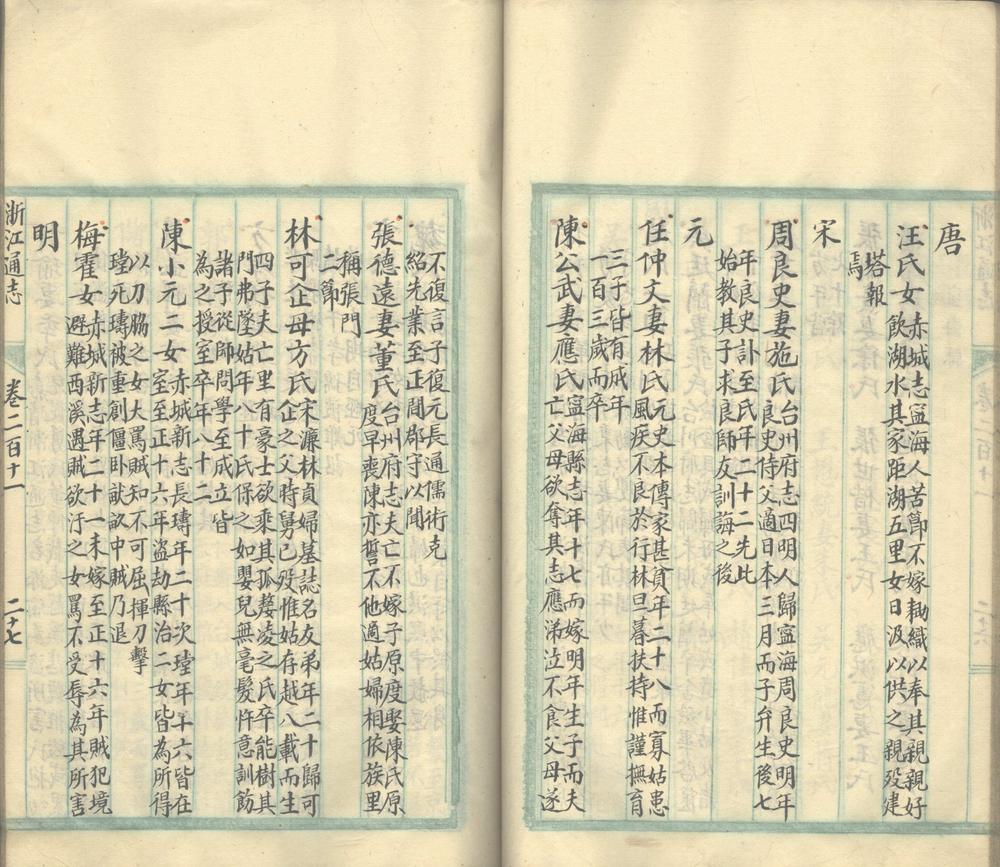 唐
汪氏女赤城志寧海人苦節不嫁織以奉其親親好
飲湖水其家距湖五里女日汲以供之親歿建
塔報
焉
宋
周良史妻施氏台州府志四明人歸寧海周良史明年
良史侍父適日本三月而子弁生後七
年良史訃至氏年二十二先此
始教其子求良師友訓誨之後
元
任仲文妻林氏元史本傳家甚貧年二十八而寡姑患
風疾不良於行林旦暮扶持惟謹撫育
三子皆有成年
一百三歲而卒
陳公武妻應氏寧海縣志年十七而嫁明年生子而夫
亡父母欲奪其志應涕泣不食父母遂
不復言子復元長通儒術克
紹先業至正間郡守以聞
張德遠妻董氏台州府志夫亡不嫁子原度娶陳氏原
度早喪陳亦誓不他適姑婦相依族里
稱張門
二節
林可企母方氏宋濂林貞婦墓誌名友弟年二十歸可
企之父時舅已歿惟姑存越八載而生
四子夫亡里有豪士欲乘其孤嫠凌之氏卒能樹其
門弗墜姑年八十氏保之如嬰兒無毫髮忤意訓飭
諸子從師問學至成立皆
為之授室卒年八十二
陳小元二女赤城新志長璹年二十次瑝年十六皆在
室至正十六年盜劫縣治二女皆為所得
以刀脇之女大罵賊知不可屈揮刀擊
瑝死璹被重創僵卧畎畝中賊乃退
梅霍一女赤城新志年二十一未嫁至正十六年賊犯境
避難西溪遇賊欲汙之女罵不受辱為其所害
明
浙江通志 卷二百十一 二十七